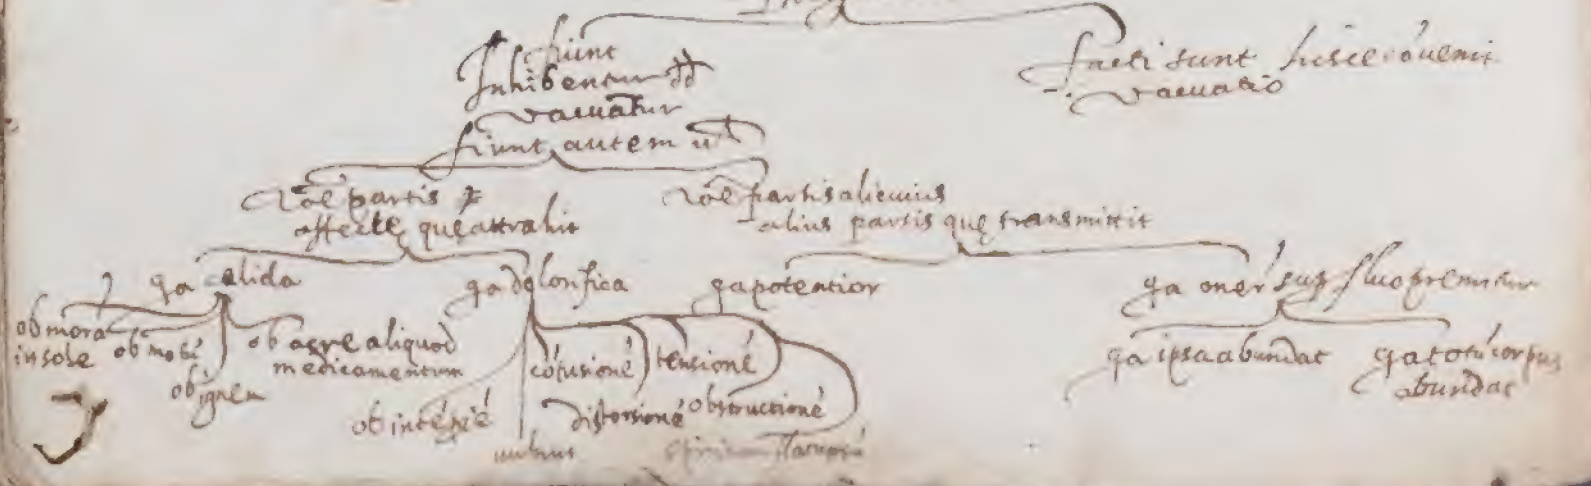 fiunt
Inhibentur
vacuatur
fiunt autem
facti sunt hisce cōuenit
vacuatio
rōe partis
affecte quę attrahit
rōe partis alicuius
alius partis quę transmittit
qa calida
qa dolorifica
qa potentior
qa onere supfluo premitur
ob morā
in sole
ob motū
ob ignem
ob acre aliquod
medicamentum
ob intēpiē
vulnus
cōtusionē
tensionē
distorsionē
obstructionē
qa ipsa abundat
qa totū corpus
abundat